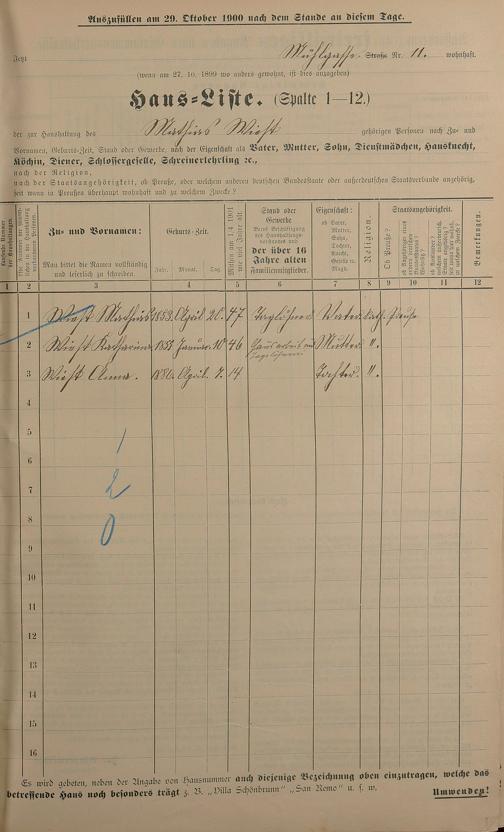 Auszufüllen am 29. Oktober 1900 nach dem Stande an diesem Tage.
Jetzt Mühlgasse Straße Nr. 11. wohnhaft.
(wenn am 27. 10. 1899 wo anders gewohnt, ist dies anzugeben)
Haus-Liste. (Spalte 1—12.)
der zur Haushaltung des Mathias Wiest gehörigen Personen nach Zu- und
Vornamen, Geburts-Zeit, Stand oder Gewerbe, nach der Eigenschaft als Vater, Mutter, Sohn, Dienstmädchen, Hausknecht,
Köchin, Diener, Schlossergeselle, Schreinerlehrling ꝛc.,
nach der Religion,
nach der Staatsangehörigkeit, ob Preuße, oder welchem anderen deutschen Bundesstaate oder außerdeutschen Staatsverbande angehörig,
seit wann in Preußen überhaupt wohnhaft und zu welchem Zwecke?
Zu- und Vornamen:
Man bittet die Namen vollständig
und leserlich zu schreiben.
Geburts-Zeit.
Jahr. Monat. Tag.
Stand oder
Gewerbe
der über 16
Jahre alten
Familienmitglieder.
Eigenschaft:
ob Vater,
Mutter,
Sohn,
Tochter,
Knecht,
Geselle u.
Magd.
Religion.
Staatsangehörigkeit.
Ob Preuße?
Bemerkungen.
1 2 3 4 5 6 7 8 9 10 11 12
1 Wiest Mathias 1853 April 20. 47 Taglöhner Vater kath. Preuße
2 Wiest Katharina Januar 10 46 Mutter "
3 Wiest Anna. 1886 April 7. 14 Tochter "
4
5
6
7
8
9
10
11
12
13
14
15
16
1
2
0
Es wird gebeten, neben der Angabe von Hausnummer auch diejenige Bezeichnung oben einzutragen, welche das
betreffende Haus noch besonders trägt z. B. „Villa Schönbrunn" „San Remo" u. s. w. Umwenden!